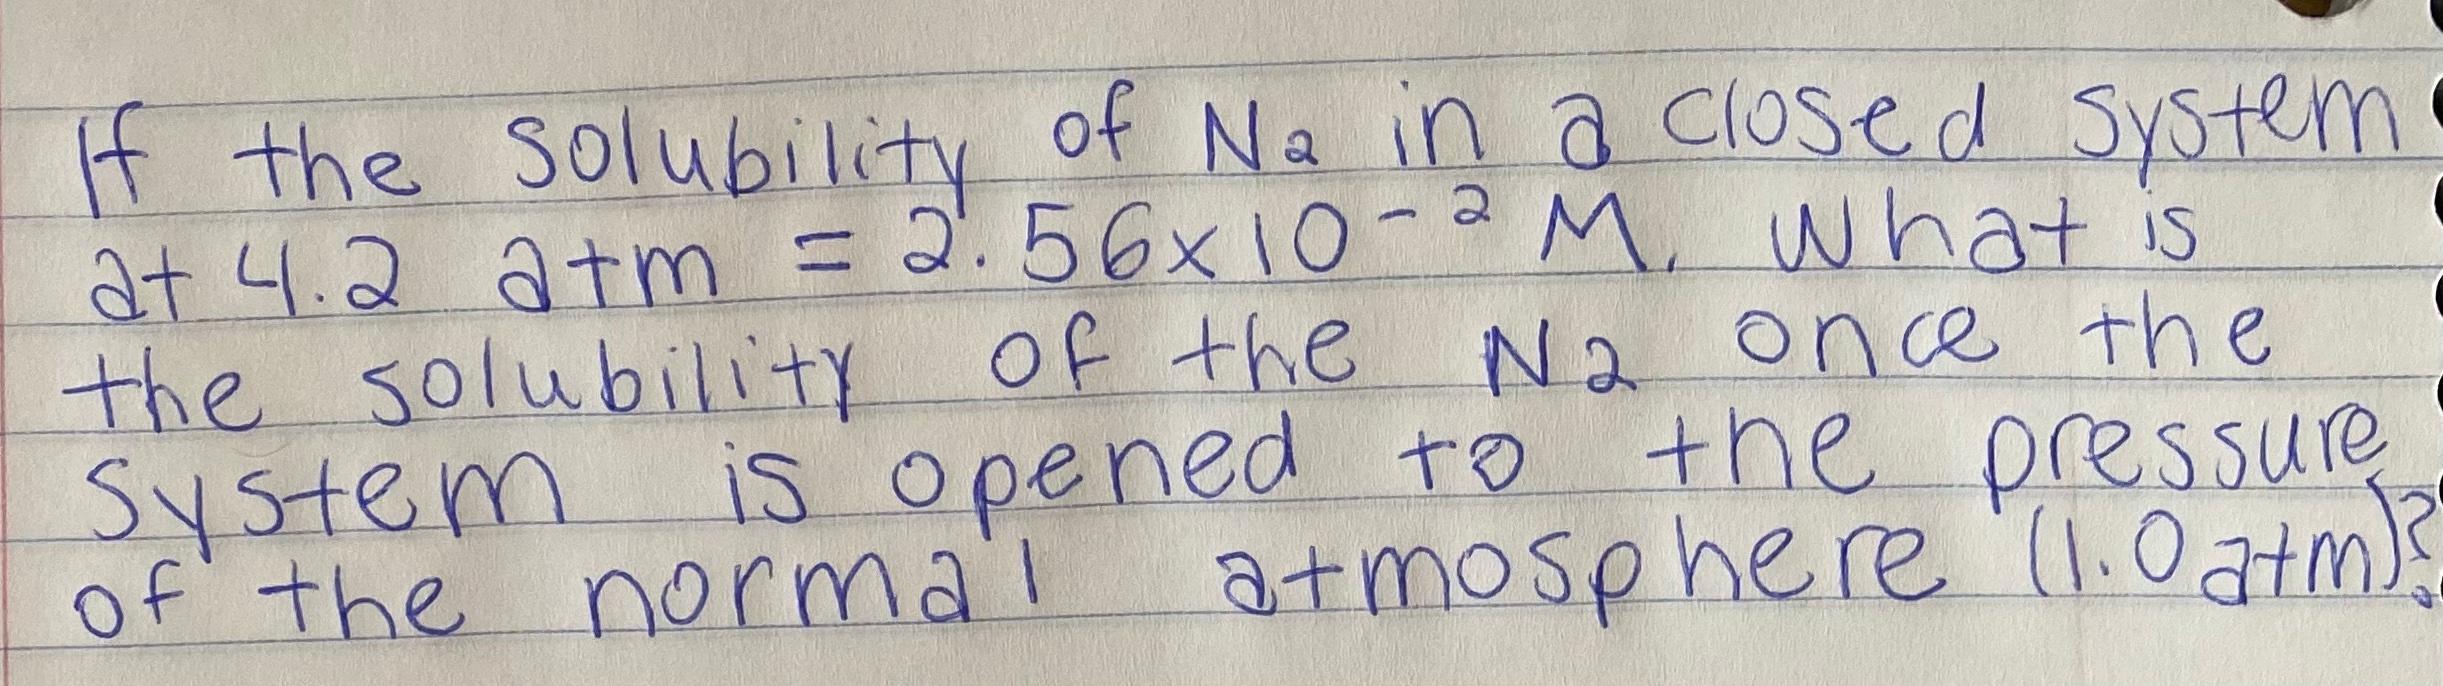 If the solubility of N2 in a closed system
at 4.2 atm = 2.56x10-² M. What is
the solubility of the N2 once the
system is opened to the pressure
of the normal atmosphere (1.0 atm)?